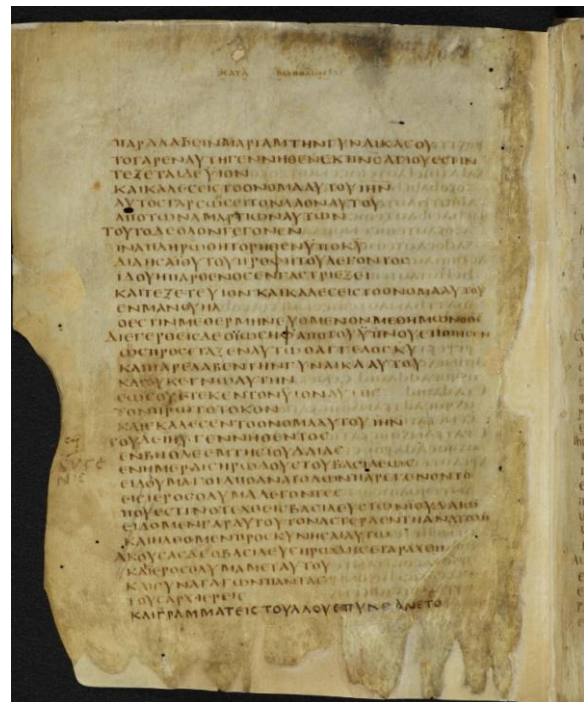 ΚΑΤΑ
ΠΑΡΑΛΑΒΕΙΝΜΑΡΙΑΜΤΗΝΓΥΝΑΙΚΑϹΟΥ
ΤΟΓΑΡΕΝΑΥΤΗΓΕΝΝΗΘΕΝΕΚΠΝϹΑΓΙΟΥΕϹΤΙΝ
ΤΕΞΕΤΑΙΔΕΥΙΟΝ
ΚΑΙΚΑΛΕϹΕΙϹΤΟΟΝΟΜΑΑΥΤΟΥΙΗΝ
ΑΥΤΟϹΓΑΡϹΩϹΕΙΤΟΝΛΑΟΝΑΥΤΟΥ
ΑΠΟΤΩΝΑΜΑΡΤΙΩΝΑΥΤΩΝ
ΤΟΥΤΟΔΕΟΛΟΝΓΕΓΟΝΕΝ
ΙΝΑΠΛΗΡΩΘΗΤΟΡΗΘΕΝΥΠΟΚΥ
ΔΙΑΗϹΑΙΟΥΤΟΥΠΡΟΦΗΤΟΥΛΕΓΟΝΤΟϹ
ΙΔΟΥΗΠΑΡΘΕΝΟϹΕΝΓΑϹΤΡΙΕΞΕΙ
ΚΑΙΤΕΞΕΤΕΥΙΟΝΚΑΙΚΑΛΕϹΕΙϹΤΟΟΝΟΜΑΑΥΤΟΥ
ΕΝΜΑΝΟΥΗΛ
ΟΕϹΤΙΝΜΕΘΕΡΜΗΝΕΥΟΜΕΝΟΝΜΕΘΗΜΩΝΟΘϹ
ΔΙΕΓΕΡΘΕΙϹΔΕΟΪΩϹΗΦΑΠΟΤΟΥΫΠΝΟΥΕΠΟΙΗϹΕΝ
ΩϹΠΡΟϹΕΤΑΞΕΝΑΥΤΩΟΑΓΓΕΛΟϹΚΥ
ΚΑΙΠΑΡΕΛΑΒΕΝΤΗΝΓΥΝΑΙΚΑΑΥΤΟΥ
ΚΑΙΟΥΚΕΓΝΩΑΥΤΗΝ
ΕΩϹΟΥΕΤΕΚΕΝΤΟΝΥΙΟΝΑΥΤΗϹ
ΤΟΝΠΡΩΤΟΤΟΚΟΝ
ΚΑΙΕΚΑΛΕϹΕΝΤΟΟΝΟΜΑΑΥΤΟΥΙΗΝ
ΤΟΥΔΕΙΗΥΓΕΝΝΗΘΕΝΤΟϹ
ΕΝΒΗΘΛΕΕΜΤΗϹΙΟΥΔΑΙΑϹ
ΕΝΗΜΕΡΑΙϹΗΡΩΔΟΥϹΤΟΥΒΑϹΙΛΕΩϹ
ΕΙΔΟΥΜΑΓΟΙΑΠΟΑΝΑΤΟΛΩΝΠΑΡΕΓΕΝΟΝΤΟ
ΕΙϹΙΕΡΟϹΟΛΥΜΑΛΕΓΟΝΤΕϹ
ΠΟΥΕϹΤΙΝΟΤΕΧΘΕΙϹΒΑϹΙΛΕΥϹΤΩΝΙΟΥΔΑΙΩ
ΕΙΔΟΜΕΝΓΑΡΑΥΤΟΥΤΟΝΑϹΤΕΡΑΕΝΤΗΑΝΑΤΟΛΗ
ΚΑΙΗΛΘΟΜΕΝΠΡΟϹΚΥΝΗϹΑΙΑΥΤΩ
ΑΚΟΥϹΑϹΔΕΟΒΑϹΙΛΕΥϹΗΡΩΔΗϹΕΤΑΡΑΧΘΗ
ΚΑΙΙΕΡΟϹΟΛΥΜΑΜΕΤΑΥΤΟΥ
ΚΑΙϹΥΝΑΓΑΓΩΝΠΑΝΤΑϹ
ΤΟΥϹΑΡΧΙΕΡΕΙϹ
ΚΑΙΓΡΑΜΜΑΤΕΙϹΤΟΥΛΑΟΥΕΠΥΝΘΑΝΕΤΟ